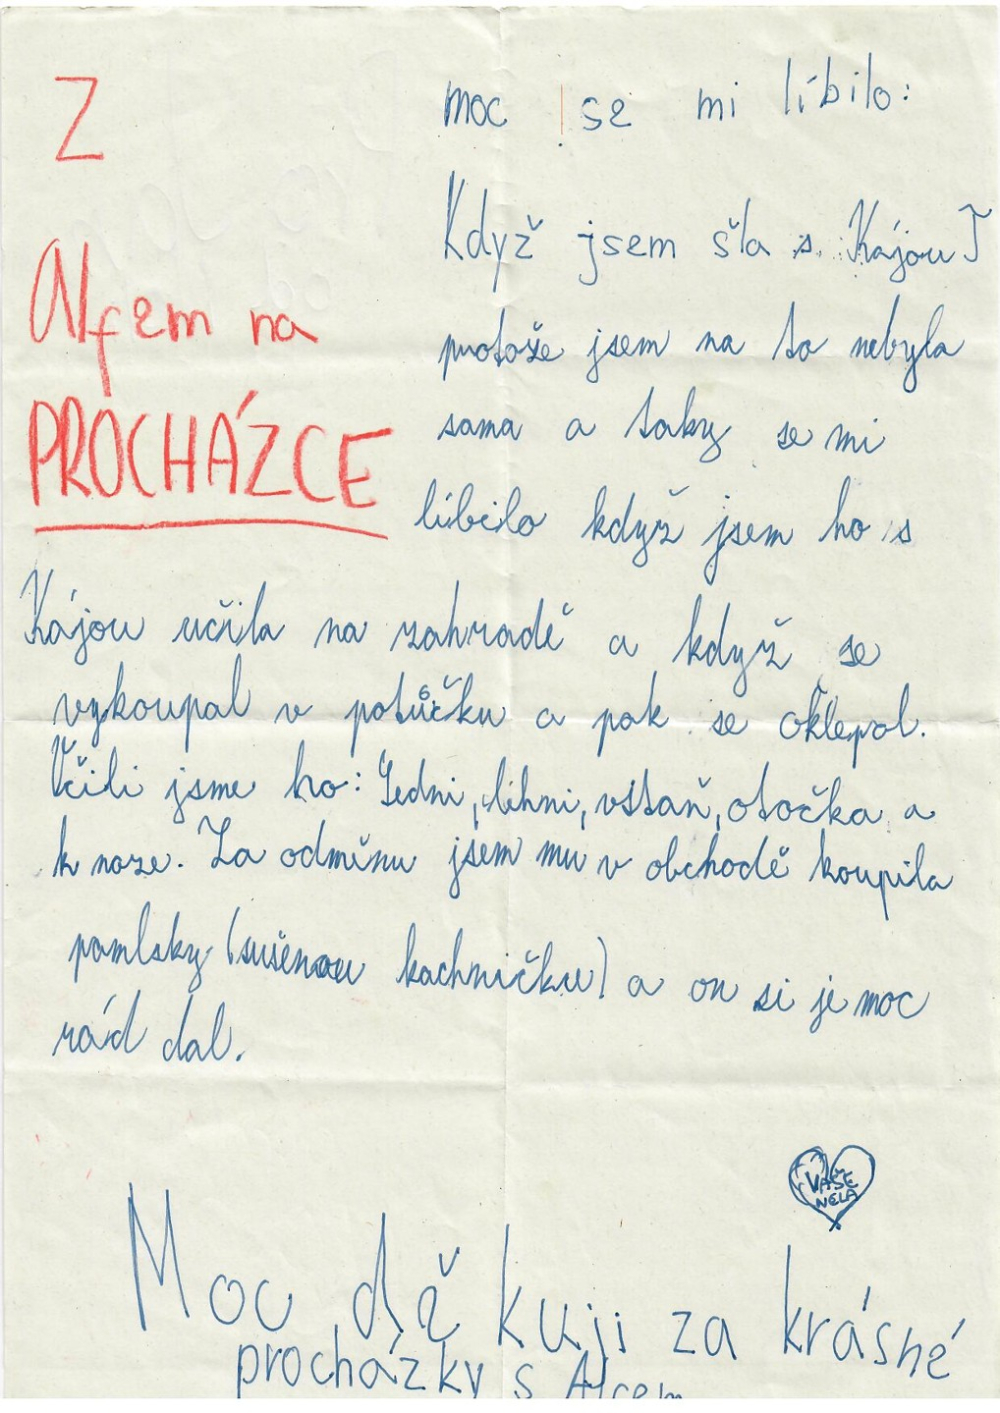 Z
Alfem na
PROCHÁZCE
moc se mi líbilo:
Když jsem šla s Kájou T
protože jsem na to nebyla
sama a taky se mi
líbilo když jsem ho s
Kájou učila na zahradě a když se
vykoupal v potůčku a pak se oklepal.
Učili jsme ho: Sedni, lehni, vstaň, otočka a
k noze. Za odměnu jsem mu v obchodě koupila
pamlsky (sušenou kachničku) a on si je moc
rád dal.
VAŠE
NELA
Moc děkuji za krásné
procházky s Alfem